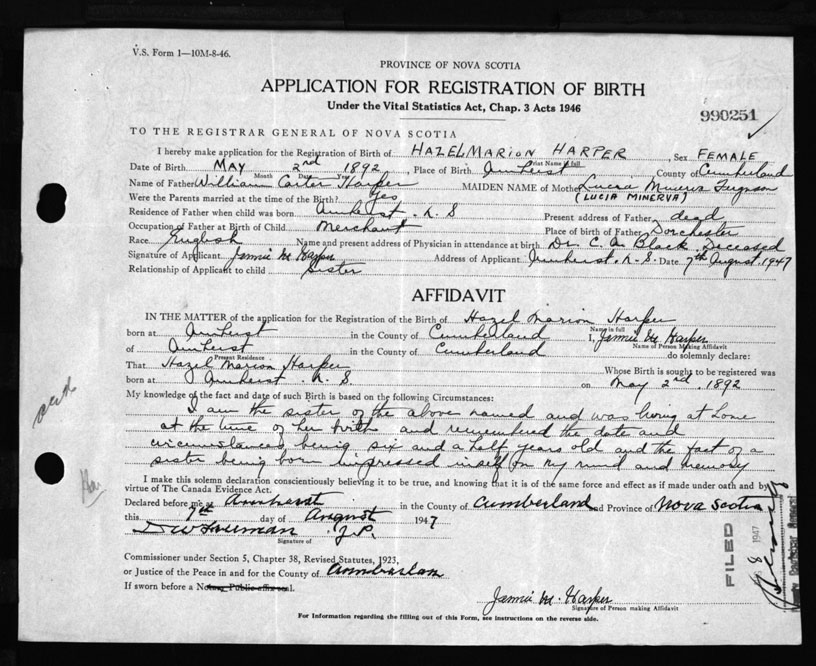 V.S. Form 1—10M-8-46.
PROVINCE OF NOVA SCOTIA
APPLICATION FOR REGISTRATION OF BIRTH
Under the Vital Statistics Act, Chap. 3 Acts 1946
990251
TO THE REGISTRAR GENERAL OF NOVA SCOTIA
I hereby make application for the Registration of Birth of HAZEL MARION HARPER, Sex FEMALE
Print Name in full
Date of Birth MAY 2nd 1892, Place of Birth Amherst County of Cumberland
Month Date Year
Name of Father William Carter Harper MAIDEN NAME of Mother Lucia Minerva Ferguson
(LUCIA MINERVA)
Were the Parents married at the time of the Birth? Yes
Residence of Father when child was born Amherst, N.S Present address of Father dead
Occupation of Father at Birth of Child Merchant Place of birth of Father Dorchester
Race English Name and present address of Physician in attendance at birth Dr. C. A. Black Deceased
Signature of Applicant Jannie M Harper Address of Applicant Amherst, N.S. Date 7th August, 1947
Relationship of Applicant to child Sister
AFFIDAVIT
IN THE MATTER of the application for the Registration of the Birth of Hazel Marion Harper
Name in full
born at Amherst in the County of Cumberland I, Jannie M Harper
Name of Person Making Affidavit
of Amherst in the County of Cumberland do solemnly declare:
Present Residence
That Hazel Marion Harper Whose Birth is sought to be registered was
born at Amherst, N.S. on May 2nd, 1892
My knowledge of the fact and date of such Birth is based on the following Circumstances:
I am the sister of the above named and was living at home
at the time of her birth and remembered the date and
circumstances being six and a half years old and the fact of a
sister being born impressed itself on my mind and memory
I make this solemn declaration conscientiously believing it to be true, and knowing that it is of the same force and effect as if made under oath and by
virtue of The Canada Evidence Act.
Declared before me at Amherst in the County of Cumberland and Province of Nova Scotia
this 7th day of August 1947
J.P.
Signature of
Commissioner under Section 5, Chapter 38, Revised Statutes, 1923,
or Justice of the Peace in and for the County of Cumberland
If sworn before a Notary Public affix seal.
Jannie M. Harper
Signature of Person making Affidavit
For Information regarding the filling out of this Form, see instructions on the reverse side.
FILED
8 1947